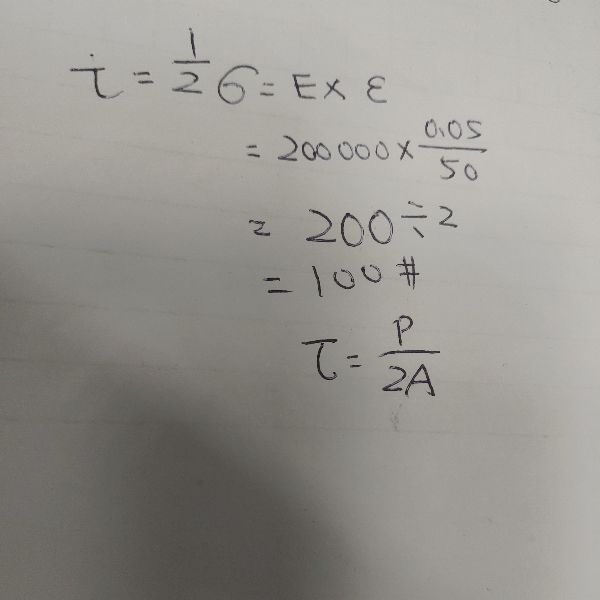 τ = 1/2 σ = E × ε
= 200000 × 0.05/50
= 200 ÷ 2
= 100 #
τ = P/2A